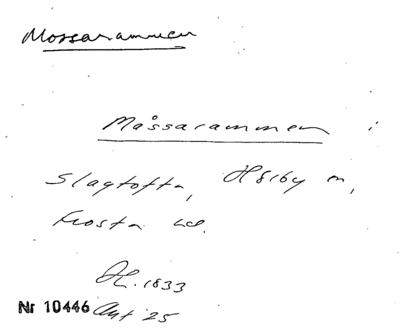 Mossarammen
Måssarammen i
Slagtofta, Hörby sn,
Frosta hd.
1833
Nr 10446 Akt 25